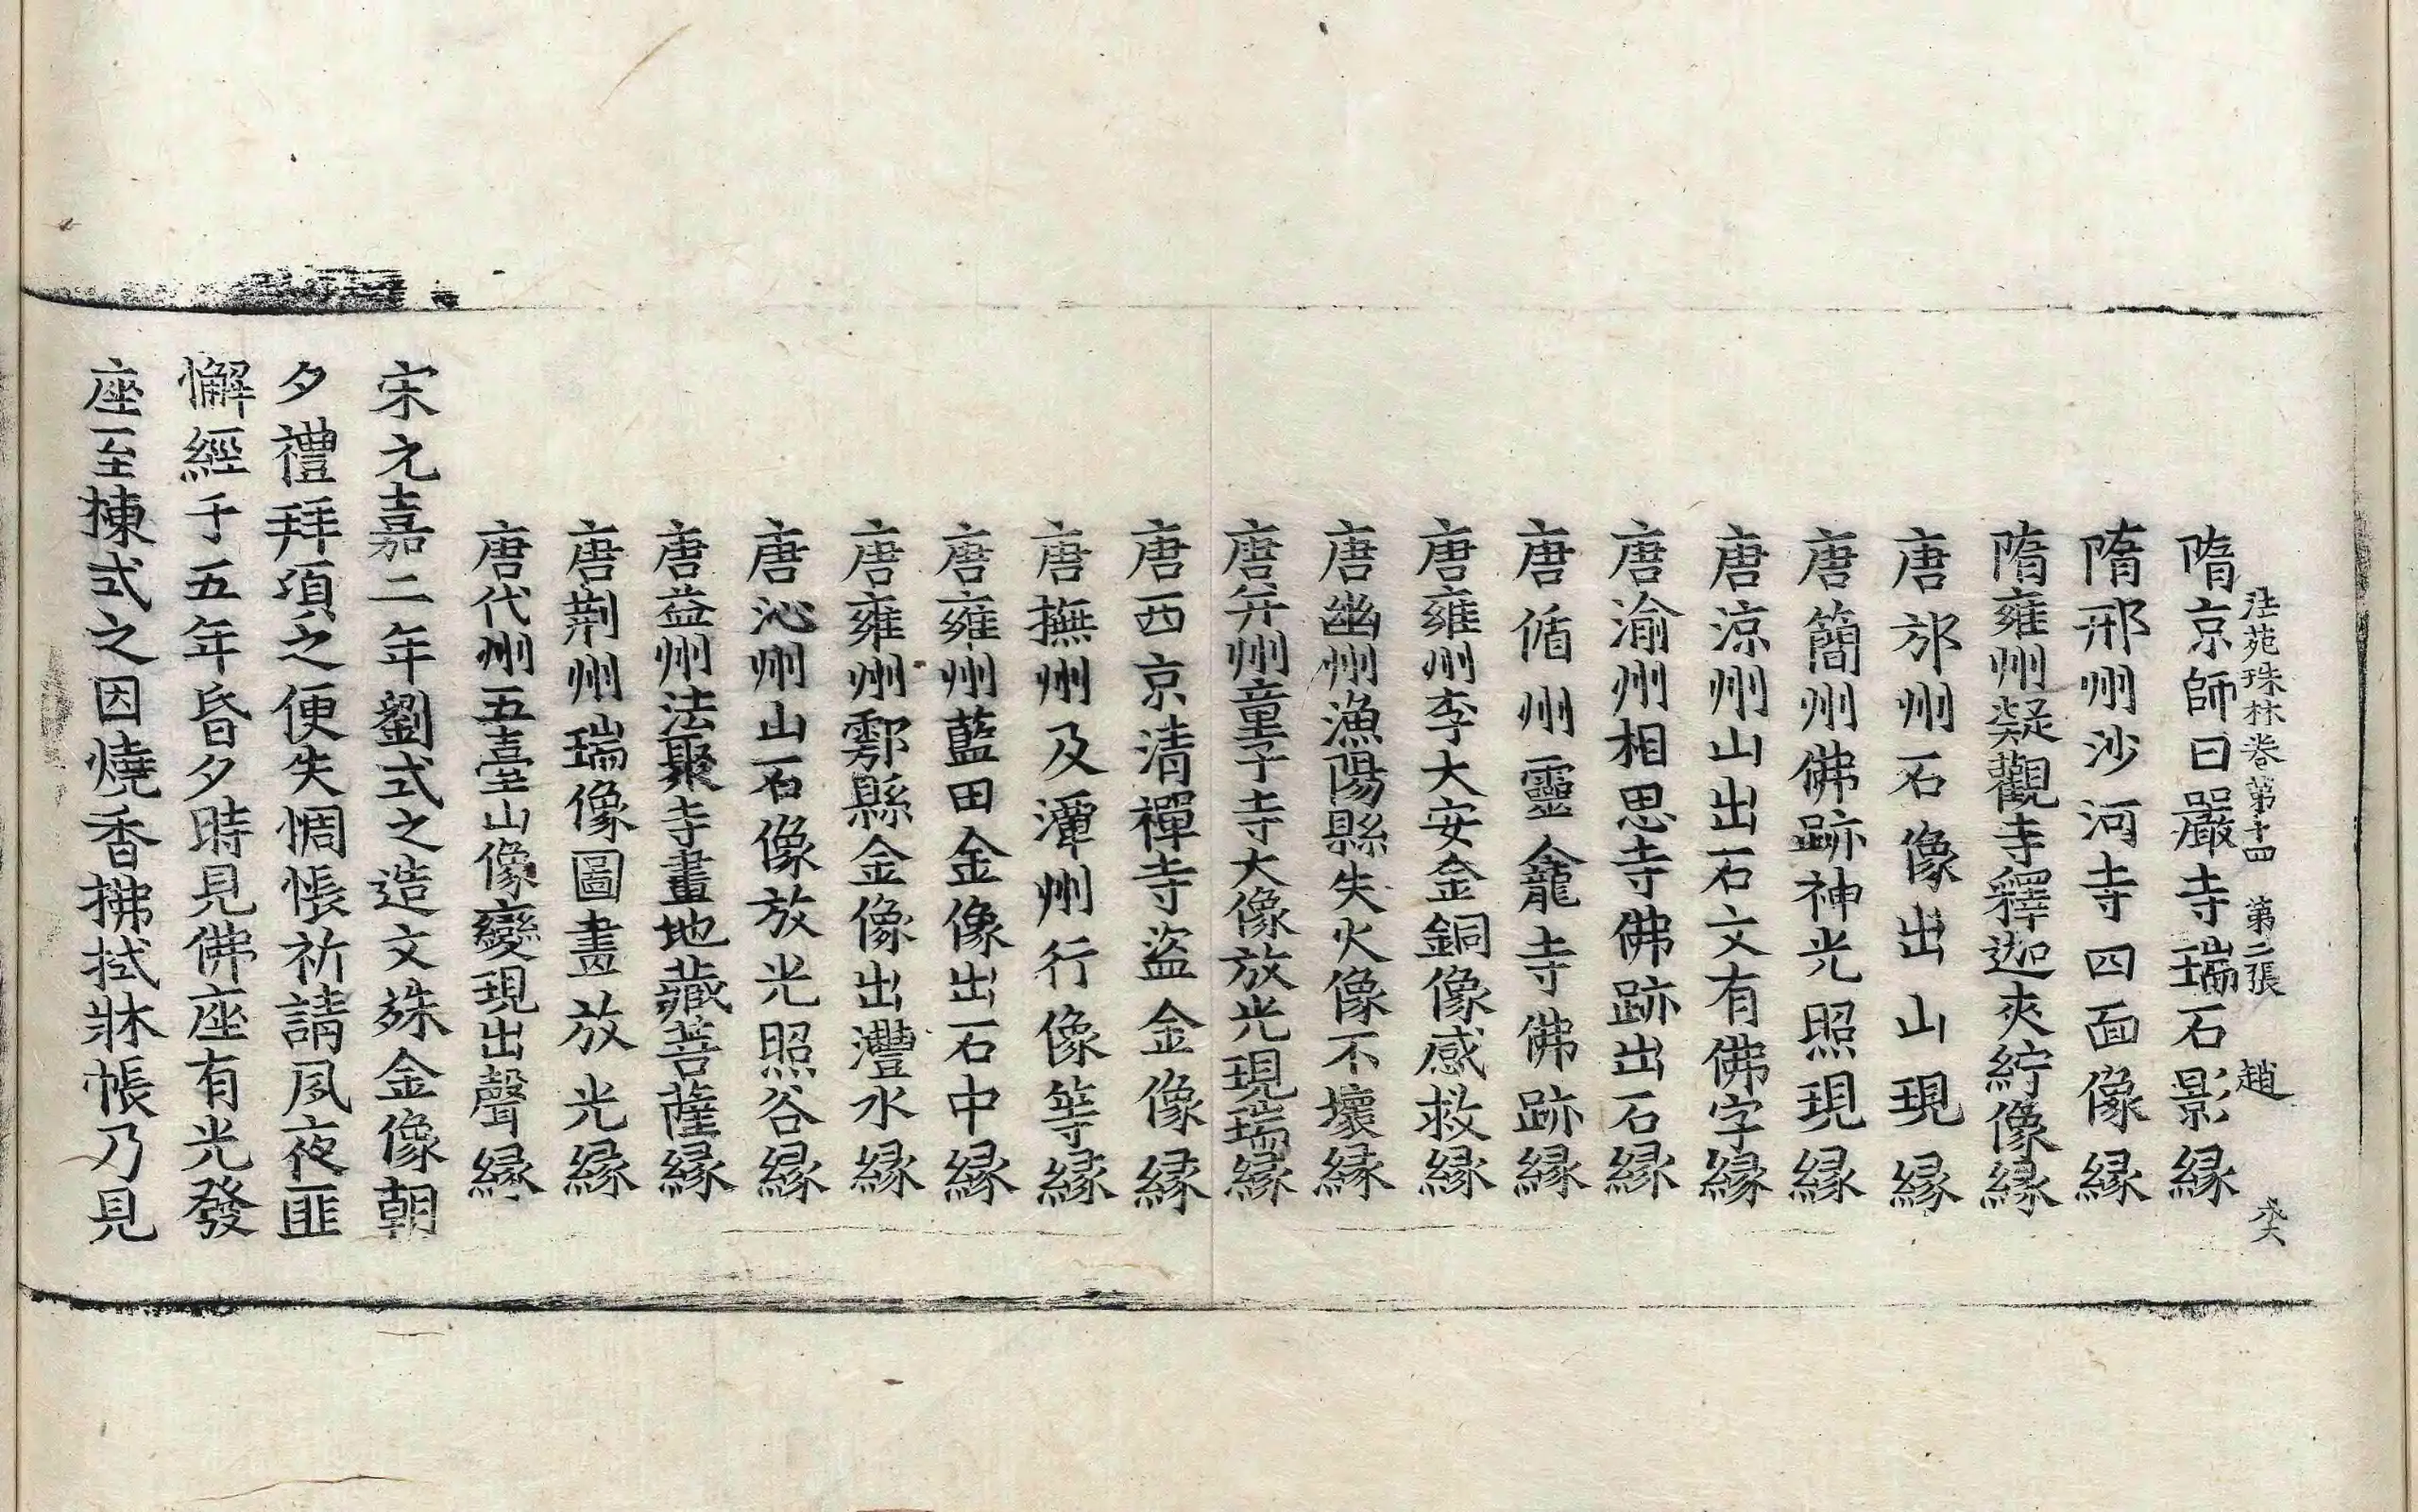 隋京師日嚴寺瑞石影緣
法苑珠林卷第十四　第二張　趙
隋邢州沙河寺四面像緣
隋雍州凝觀寺釋迦夾紵像緣
唐邡州石像出山現緣
唐簡州佛跡神光照現緣
唐涼州山出石文有佛字緣
唐渝州相思寺佛跡出石緣
唐循州靈龕寺佛跡緣
唐雍州李大安金銅像感救緣
唐幽州漁陽縣失火像不壞緣
唐并州童子寺大像放光現瑞緣
唐西京清禪寺盜金像緣
唐撫州及潭州行像等緣
唐雍州藍田金像出石中緣
唐雍州鄠縣金像出灃水緣
唐沁州山石像放光照谷緣
唐益州法聚寺畫地藏菩薩緣
唐荆州瑞像圖畫放光緣
唐代州五臺山像變現出聲緣
宋元嘉二年劉式之造文殊金像朝
夕禮拜頃之便失惆悵祈請夙夜匪
懈經于五年昏夕時見佛座有光發
座至揀式之因燒香拂拭牀帳乃見